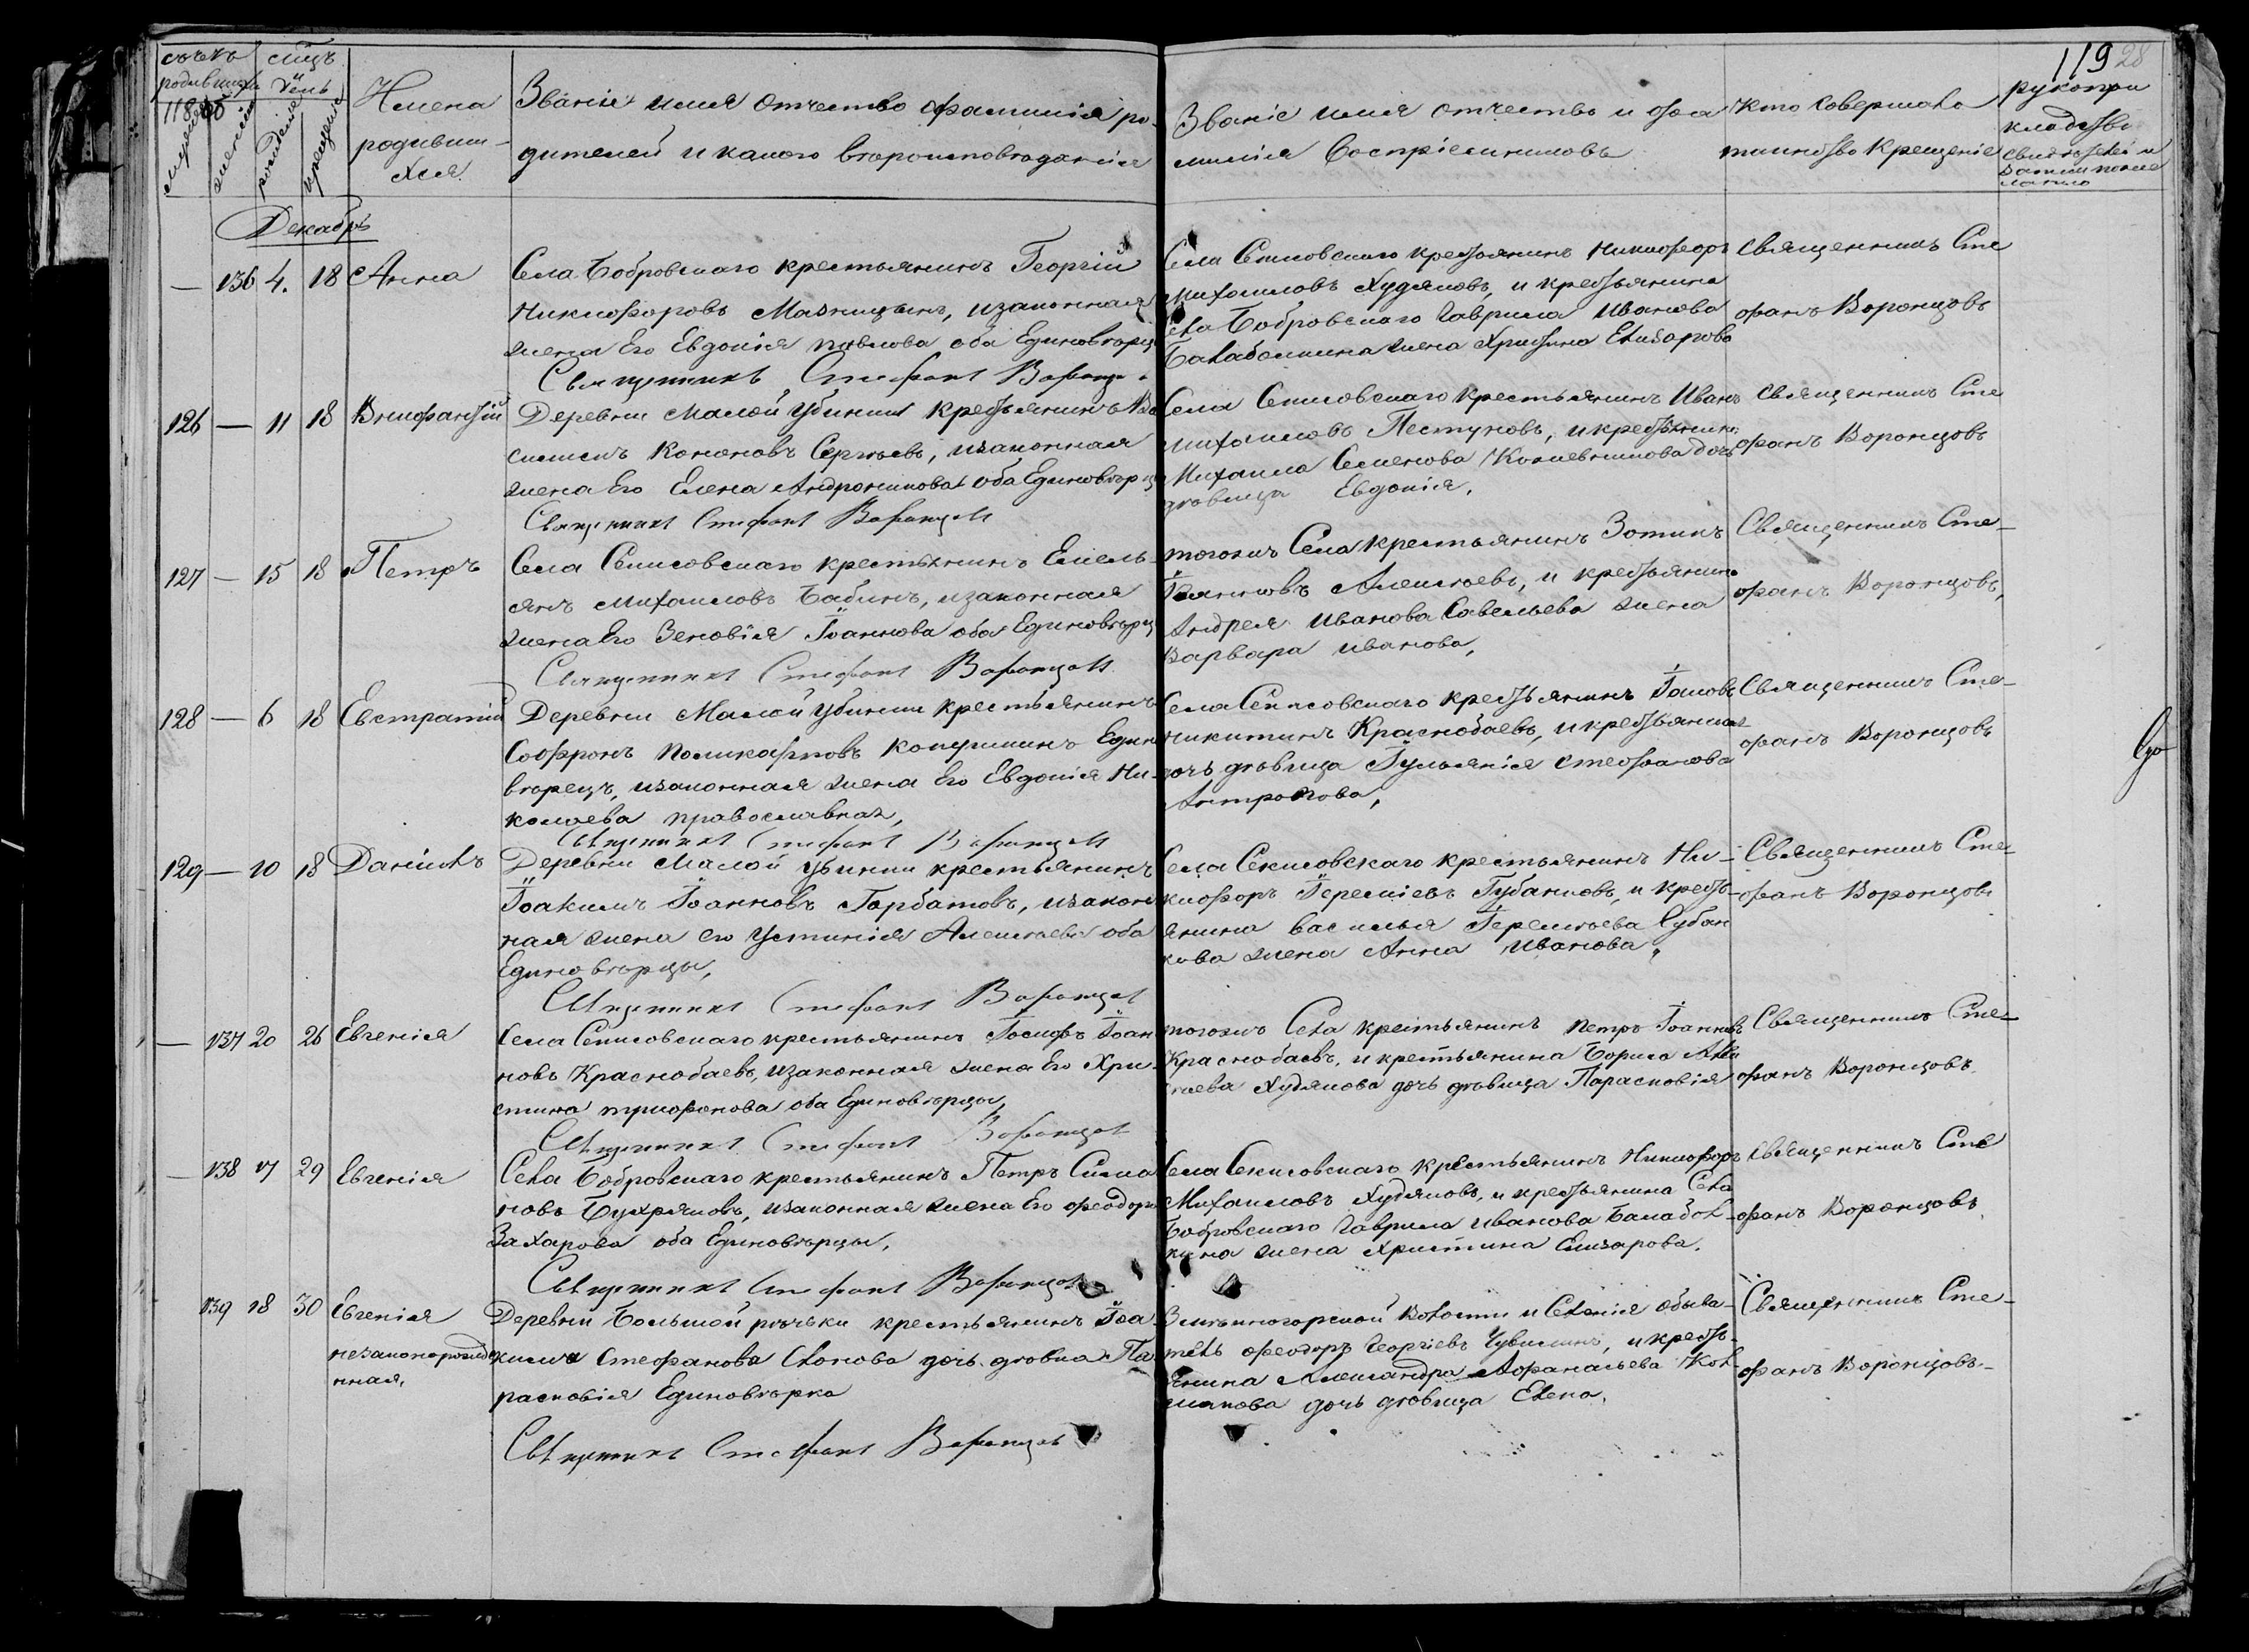 счетъ родившихся
мѣсяцъ и день
118об
мужеска
женска
рожденія
крещенія
Имена
родивши-
хся.
Званіе имя отчество фамилія ро-
дителей и какого вѣроисповѣданія
Званіе имя отчество и фа
милія Воспріемниковъ
кто совершалъ
таинство крещеніе
119 28
рукопри
кладство
свидѣтелей
Декабрь
— 136 4. 18 Анна
Села Бобровскаго крестьянинъ Георгій
Никифоровъ Мазницынъ, и законная
жена Его Евдокія павлова оба Единовѣрцы
Священникъ Стефанъ Воронцовъ
Села Секисовскаго крестьянинъ Никифоръ
Михаиловъ Худяковъ, и крестьянина
села Бобровскаго Гаврила Иванова
Балаболкина жена Христина Елизарова
Священникъ Сте
фанъ Воронцовъ
126 — 11 18 Внифантій
Деревни Малой Убинки крестьянинъ Ва
силискъ Кононовъ Сергѣевъ, и законная
жена Его Елена Андроникова оба Единовѣрцы
Священникъ Стефанъ Воронцовъ
Села Секисовскаго крестьянинъ Иванъ
Михаиловъ Пестуновъ, и крестьянина
Михаила Семенова Кожевникова дочь
дѣвица Евдокія,
Священникъ Сте
фанъ Воронцовъ
127 — 15 18 Петръ
Села Секисовскаго крестьянинъ Емель-
янъ Михаиловъ Бабинъ, и законная
жена Его Зеновія Іоаннова оба Единовѣрцы
Священникъ Стефанъ Воронцовъ
тогожъ Села крестьянинъ Зотикъ
Іоанновъ Алексѣевъ, и крестьянина
Андрея Иванова Савельева жена
Варвара иванова,
Священникъ Сте-
фанъ Воронцовъ,
128 — 6 18 Евстратій
Деревни Малой Убинки крестьянинъ
Софронъ Поликарповъ Копушкинъ Един
вѣрецъ, и законная жена Его Евдокія Ни-
колаева православная,
Священникъ Стефанъ Воронцовъ
Села Секисовскаго крестьянинъ Іаковъ
Никитинъ Краснобаевъ, и крестьянская
дочь дѣвица Іульянія Стефанова
Антропова,
Священникъ Сте-
фанъ Воронцовъ
129 — 10 18 Даніилъ
Деревни Малой Убинки крестьянинъ
Іоакимъ Іоанновъ Горбатовъ, и закон
ная жена его Устинія Алексѣева оба
Единовѣрцы,
Священникъ Стефанъ Воронцовъ
Села Секисовскаго крестьянинъ Ни-
кифоръ Іереміевъ Губановъ, и кресть-
янина василья Іеремѣева Губан
кова жена Анна Иванова,
Священникъ Сте-
фанъ Воронцовъ
— 137 20 26 Евгенія
Села Секисовскаго крестьянинъ Іосифъ Іоан
новъ Краснобаевъ, и законная жена Его Хри-
стина трифонова оба Единовѣрцы,
Священникъ Стефанъ Воронцовъ
тогожъ Села крестьянинъ петръ Іоанновъ
Краснобаевъ, и крестьянина Бориса
Худякова дочь дѣвица Парасковія
Священникъ Сте-
фанъ Воронцовъ.
— 138 17 29 Евгенія
Села Бобровскаго крестьянинъ Петръ Симо
новъ Бухряковъ, и законная жена Его феодора
Захарова оба Единовѣрцы,
Священникъ Стефанъ Воронцовъ
Села Секисовскаго крестьянинъ Никифоръ
Михаиловъ Худяковъ, и крестьянина Села
Бобровскаго Гаврила иванова Балабол-
кина жена христина Елизарова.
Священникъ Сте
фанъ Воронцовъ
139 18 30 Евгенія
незаконорожде
нная,
Деревни Большой рѣчьки крестьянина Іоа-
кима Стефанова Слонова дочь дѣвка Па
расковія Единовѣрка
Священникъ Стефанъ Воронцовъ
Змѣиногорской Волости и Селенія обыва-
тель феодоръ Георгіевъ Чувикинъ, и кресть-
янина Александра Афанасьева Кол
макова дочь дѣвица Елена.
Священникъ Сте-
фанъ Воронцовъ-